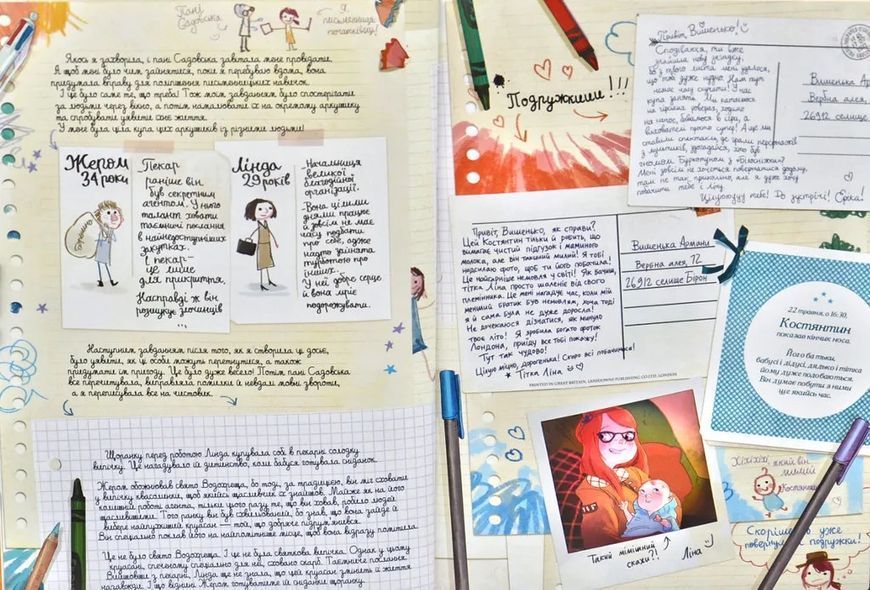 Пані Садовська
Я, письменниця-початківиця!
Якось я захворіла, і пані Садовська завітала мене провідати.
А щоб мені було чим зайнятися, поки я перебуваю вдома, вона
придумала вправу для поліпшення письменницьких навичок.
І це було саме те, що треба! Тож моїм завданням було спостерігати
за людьми через вікно, а потім намалювати їх на окремому аркушику
та спробувати уявити їхнє життя.
У мене була ціла купа цих аркушиків із різними людьми!
Жером
34 роки
-Пекар
Раніше він
був секретним
агентом. У нього
талант ховати
таємничі послання
в найнедоступніших
закутках.
І пекар-
це лише
для прикриття.
Насправді ж він
розшукує злочинців
...
Лінда
29 років
-Начальниця
великої
благодійної
організації.
-Вона цілими
днями працює
й зовсім не має
часу подбати
про себе, адже
надто зайнята
турботою про
інших.
У неї добре серце
й вона мріє
подорожувати.
Наступним завданням після того, як я створила ці досьє,
було уявити, як ці особи можуть перетнутися, а також
придумати їм пригоду. Це було дуже весело! Потім пані Садовська
все перечитувала, виправляла помилки й невдалі мовні звороти,
а я переписувала все на чистовик.
Щоранку перед роботою Лінда купувала собі в пекарні солодку
випічку. Це нагадувало їй дитинство, коли бабуся готувала сніданок.
Жером обожнював свято Водохреща, бо тоді, за традицією, він міг сховати
у випічку квасолинки, щоб якийсь щасливчик їх знайшов. Майже як на його
колишній роботі агента, тільки цього разу те, що він ховав, робило людей
щасливішими. Того ранку він був схвильований, бо знав, що вона зайде й
вибере найпухкіший круасан — той, що добряче підрум'янився.
Він спеціально поклав його на найпомітніше місце, щоб вона відразу помітила.
Це не було свято Водохреща. І це не була святкова випічка. Однак у цьому
круасані, спеченому спеціально для неї, сховано скарб. Таємниче послання.
Вийшовши з пекарні, Лінда ще не знала, що цей круасан змінить її життя
назавжди. І що віднині Жером готуватиме їй сніданки щоранку.
Подружкиии!!!
Привіт, Вишенько!
Сподіваюся, ти вже
Вишенька Арма
Вербна алея,
26912 селище
Цілуюууу тебе! До зустрічі! Еріка!
Привіт, Вишенько, як справи?
Цей Костянтин тільки й робить, що
вимагає чистий підгузок і маминого
молока, але він такиий милий! Я тобі
надсилаю фото, щоб ти його побачила!
Це найгарніше немовля у світі! Як бачиш,
тітка Ліна просто шаленіє від свого
племінника. Це мені нагадує час, коли мій
менший братик був немовлям, хоча тоді
я й сама була не дуже доросла!
Не дочекаюся дізнатися, як минуло
твоє літо! Я зробила багато фоток
Лондона, приїду все тобі покажу!
Тут так чудово!
Цілую міцно, дорогенька! Скоро всі побачимося!
Тітка Ліна
Вишенька Армані
Вербна алея 12
26912 селище Бірон
PRINTED IN GREAT BRITAIN, LANSDOWNE PUBLISHING CO LTD, LONDON
22 травня, о 16:30,
Костянтин
показав кінчик носа.
Його батьки,
бабусі і дідусі, дядько і тітка
йому дуже подобаються.
Він думає побути з ними
ще якийсь час.
Такий мімішний
скажи?!
Ліна
Хіхіхіхі, який він
милий
Костянтин
Скоріш би уже
повернулися подружки!